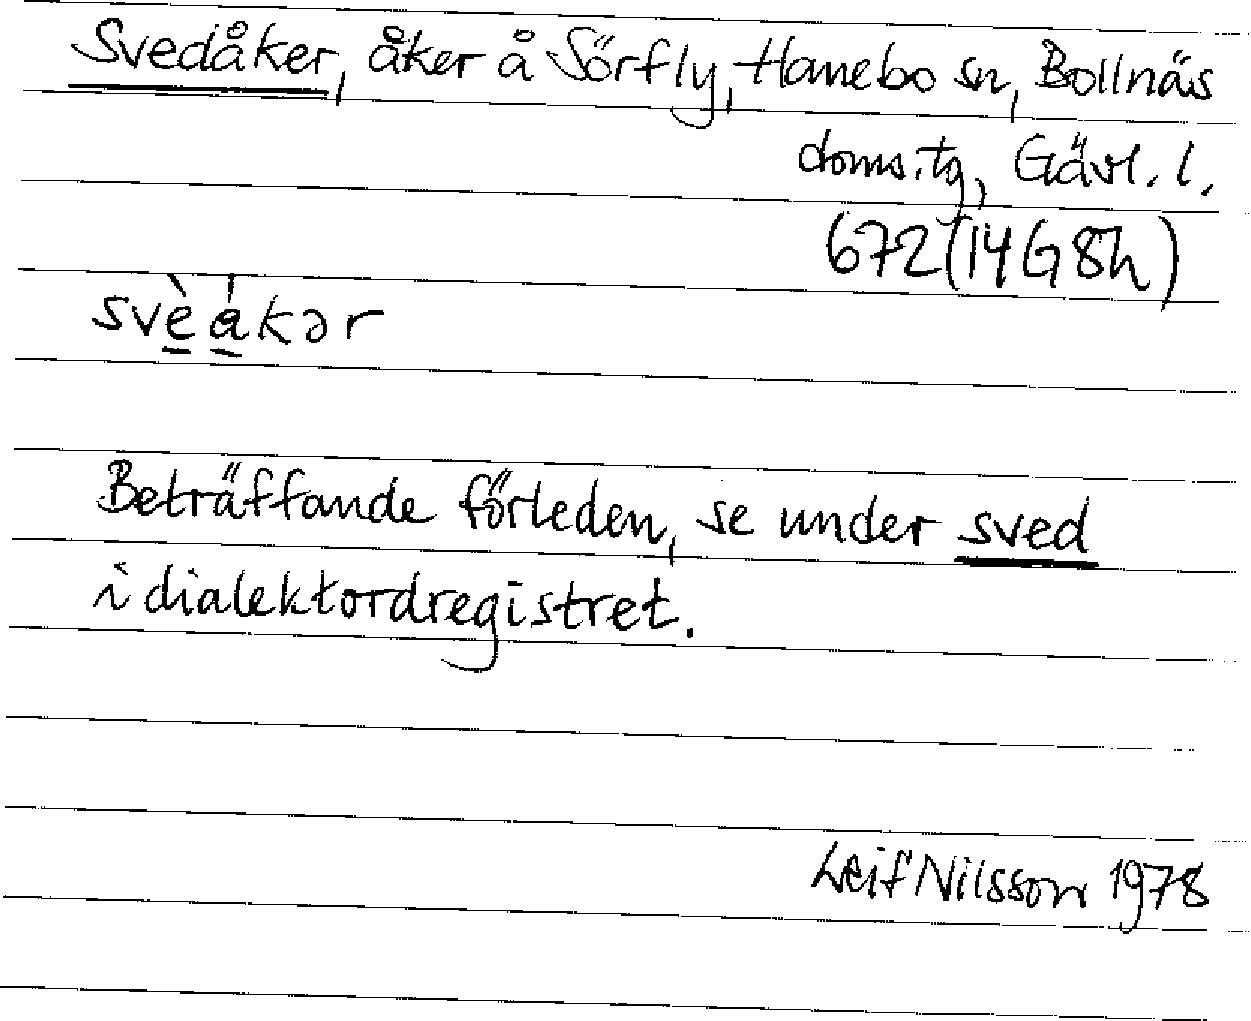 Svedåker, åker å Sörfly, Hanebo sn, Bollnäs
doms.tg, Gävl. l.
672 (14 G 8h)
svè̱á̱kər
Beträffande förleden, se under sved
i dialektordregistret.
Leif Nilsson 1978